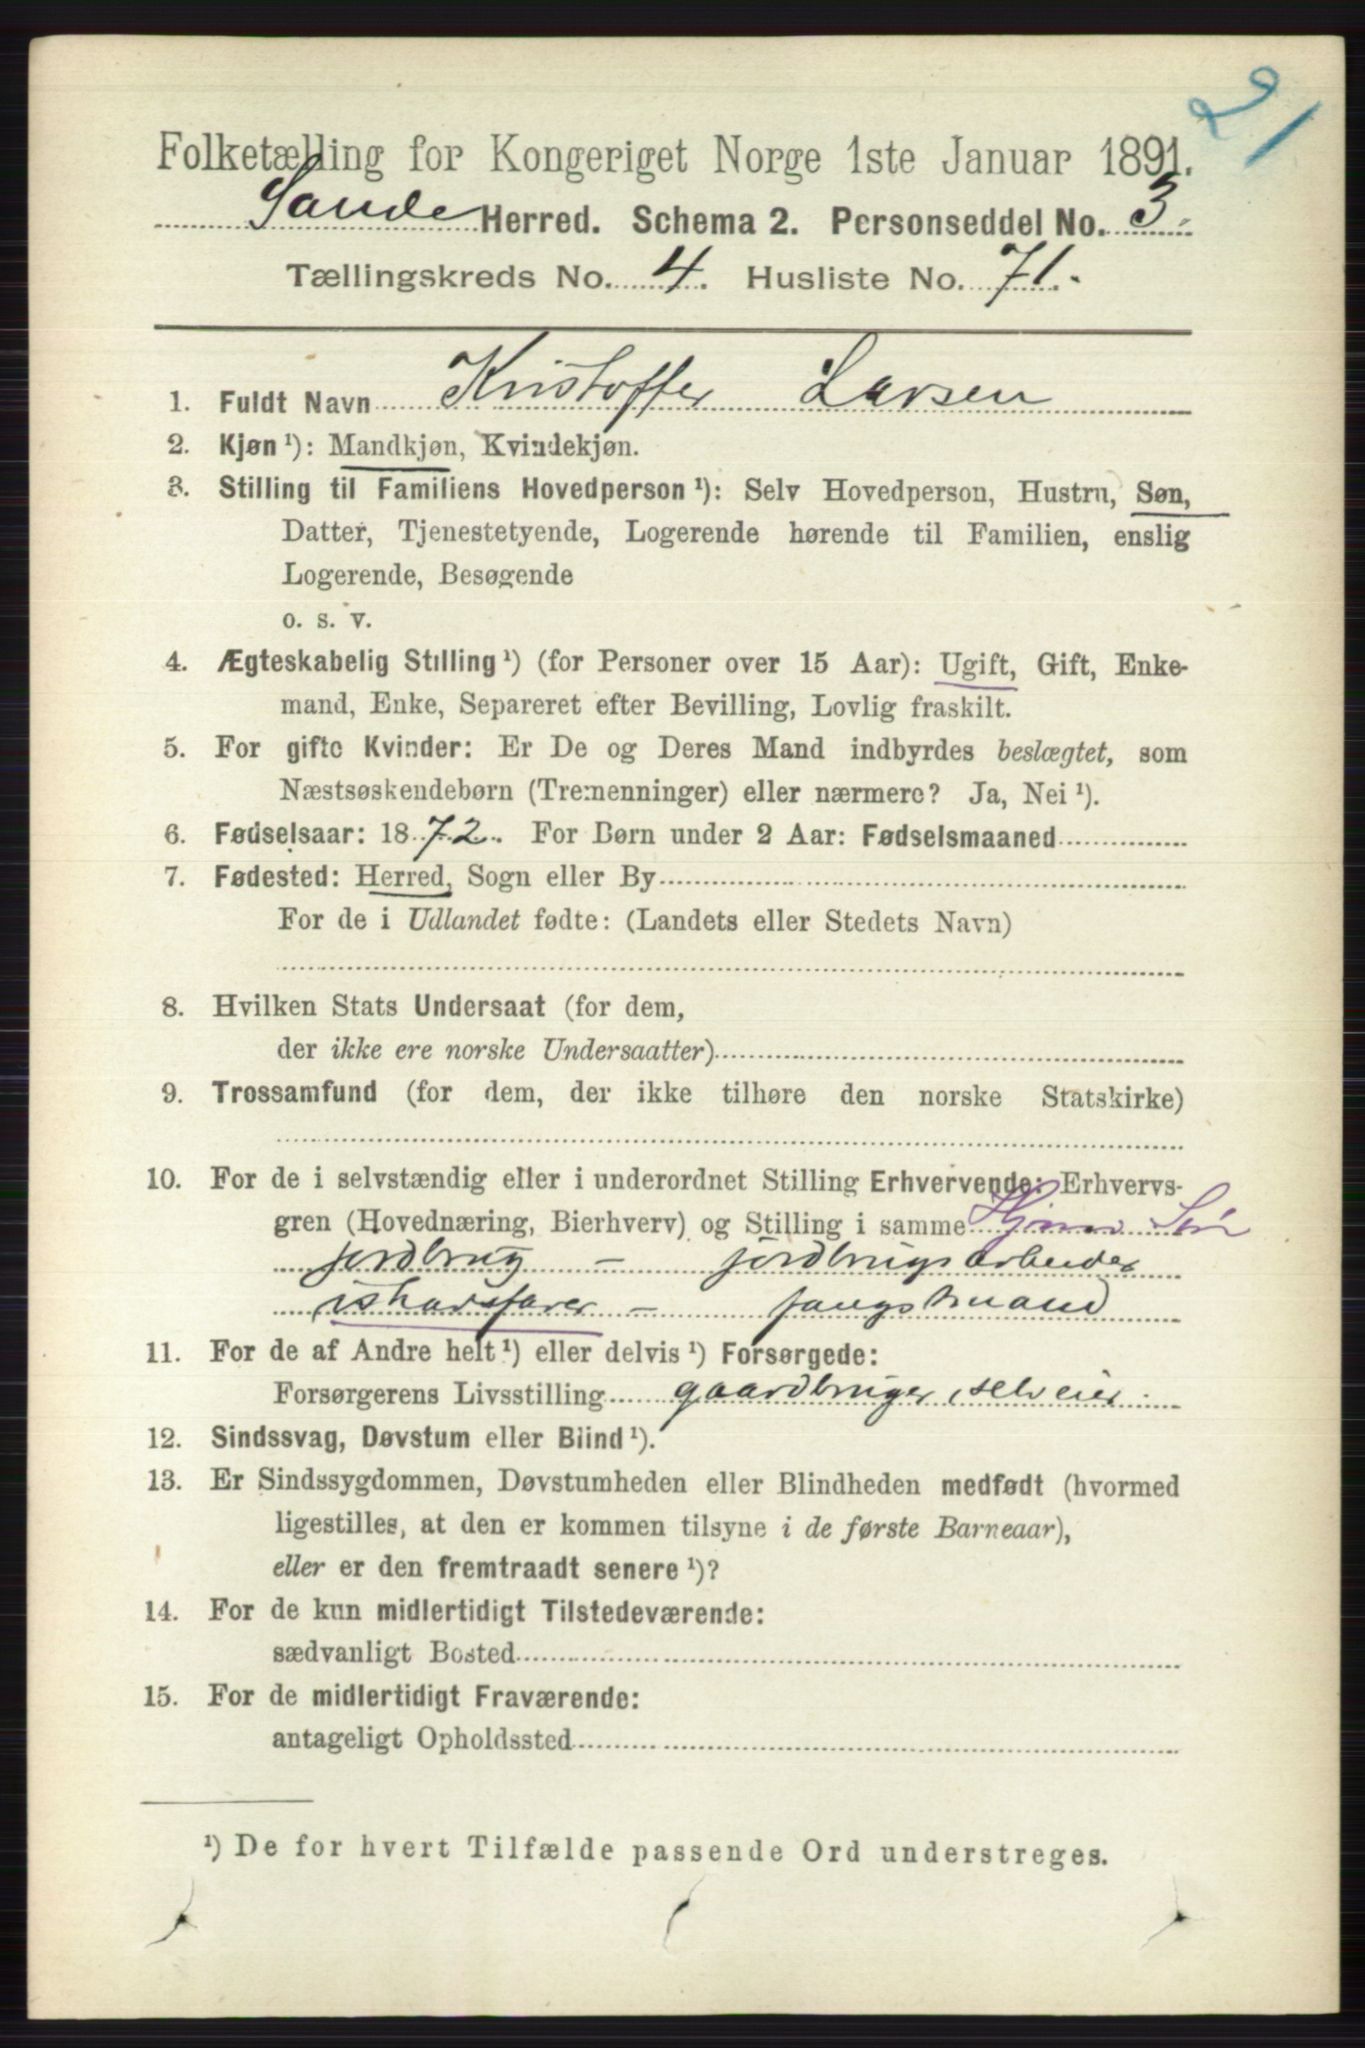 21
Folketælling for Kongeriget Norge 1ste Januar 1891.
Sande Herred. Schema 2. Personseddel No. 3.
Tællingskreds No. 4. Husliste No. 71.
1. Fuldt Navn Kristoffer Larsen
2. Kjøn¹): Mandkjøn, Kvindekjøn.
3. Stilling til Familiens Hovedperson¹): Selv Hovedperson, Hustru, Søn,
Datter, Tjenestetyende, Logerende hørende til Familien, enslig
Logerende, Besøgende
o. s. v.
4. Ægteskabelig Stilling¹) (for Personer over 15 Aar): Ugift, Gift, Enke-
mand, Enke, Separeret efter Bevilling, Lovlig fraskilt.
5. For gifte Kvinder: Er De og Deres Mand indbyrdes beslægtet, som
Næstsøskendebørn (Tremenninger) eller nærmere? Ja, Nei¹).
6. Fødselsaar: 1872. For Børn under 2 Aar: Fødselsmaaned
7. Fødested: Herred, Sogn eller By
For de i Udlandet fødte: (Landets eller Stedets Navn)
8. Hvilken Stats Undersaat (for dem,
der ikke ere norske Undersaatter)
9. Trossamfund (for dem, der ikke tilhøre den norske Statskirke)
10. For de i selvstændig eller i underordnet Stilling Erhvervende: Erhvervs-
gren (Hovednæring, Bierhverv) og Stilling i samme
jordbrug – jordbrugsarbeider
ishavsfarer – fangstmand
11. For de af Andre helt¹) eller delvis¹) Forsørgede:
Forsørgerens Livsstilling gaardbruger, selveier.
12. Sindssvag, Døvstum eller Blind¹).
13. Er Sindssygdommen, Døvstumheden eller Blindheden medfødt (hvormed
ligestilles, at den er kommen tilsyne i de første Barneaar),
eller er den fremtraadt senere¹)?
14. For de kun midlertidigt Tilstedeværende:
sædvanligt Bosted
15. For de midlertidigt Fraværende:
antageligt Opholdssted
¹) De for hvert Tilfælde passende Ord understreges.